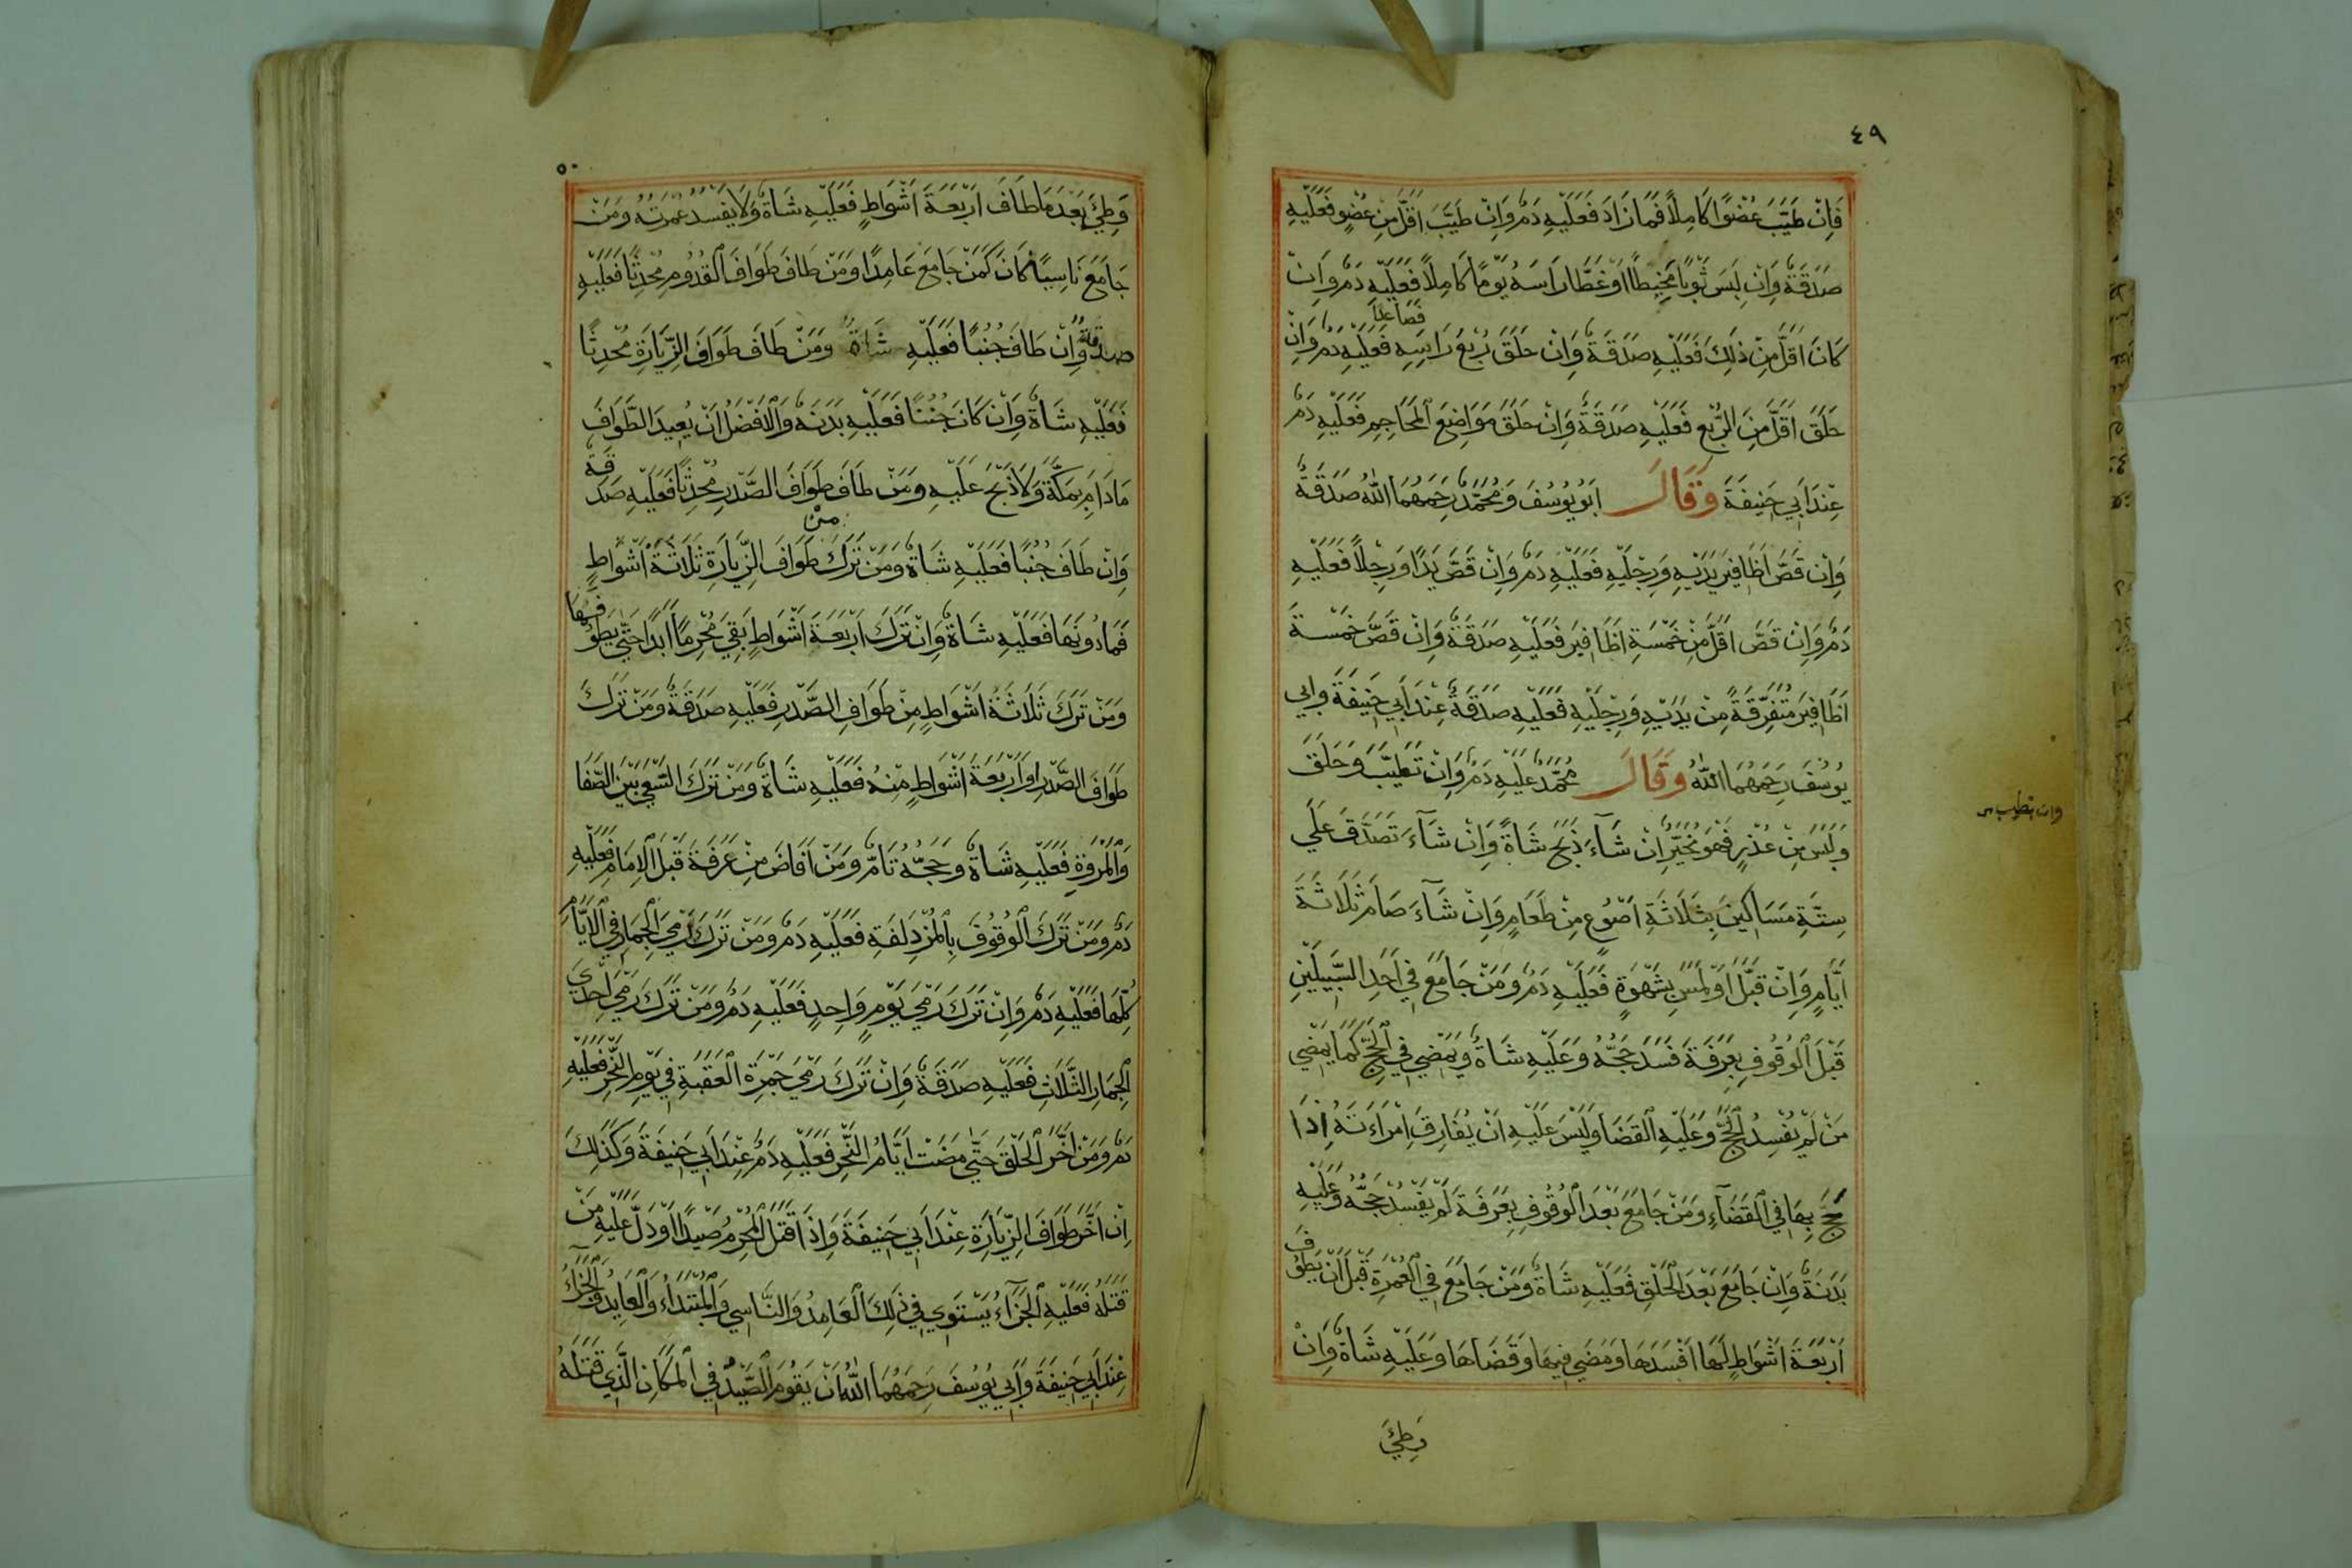 ٤٩
فَاِنْ طَيَّبَ عُضْوًا كَامِلًا فَمَا زَادَ فَعَلَيْهِ دَمٌ وَاِنْ طَيَّبَ اَقَلَّ مِنْ عُضْوٍ فَعَلَيْهِ
صَدَقَةٌ وَاِنْ لَبِسَ ثَوْبًا مَخِيطًا اَوْ غَطَّا رَاسَهُ يَوْمًا كَامِلًا فَعَلَيْهِ دَمٌ وَاِنْ
فصاعدا
كَانَ اَقَلَّ مِنْ ذٰلِكَ فَعَلَيْهِ صَدَقَةٌ وَاِنْ حَلَقَ رُبْعَ رَاسِهِ فَعَلَيْهِ دَمٌ وَاِنْ
حَلَقَ اَقَلَّ مِنَ الرُّبْعِ فَعَلَيْهِ صَدَقَةٌ وَاِنْ حَلَقَ مَوَاضِعَ الْمَحَاجِمِ فَعَلَيْهِ دَمٌ
عِنْدَ اَبِي حَنِيفَةَ وَقَالَ اَبُو يُوسُفَ وَمُحَمَّدٌ رَحِمَهُمَا اللّٰهُ صَدَقَةٌ
وَاِنْ قَصَّ اَظَافِيرَ يَدَيْهِ وَرِجْلَيْهِ فَعَلَيْهِ دَمٌ وَاِنْ قَصَّ يَدًا وَرِجْلًا فَعَلَيْهِ
دَمٌ وَاِنْ قَصَّ اَقَلَّ مِنْ خَمْسَةِ اَظَافِيرَ فَعَلَيْهِ صَدَقَةٌ وَاِنْ قَصَّ خَمْسَةَ
اَظَافِيرَ مُتَفَرِّقَةً مِنْ يَدَيْهِ وَرِجْلَيْهِ فَعَلَيْهِ صَدَقَةٌ عِنْدَ اَبِي حَنِيفَةَ وَابِي
يُوسُفَ رَحِمَهُمَا اللّٰهُ وَقَالَ مُحَمَّدٌ عَلَيْهِ دَمٌ وَاِنْ تَطَيَّبَ وَحَلَقَ
وَلَبِسَ مِنْ عُذْرٍ فَهُوَ مُخَيَّرٌ اِنْ شَآءَ ذَبَحَ شَاةً وَاِنْ شَآءَ تَصَدَّقَ عَلَي
سِتَّةِ مَسَاكِينَ بِثَلَاثَةِ اَصْوُعٍ مِنْ طَعَامٍ وَاِنْ شَآءَ صَامَ ثَلَاثَةَ
اَيَّامٍ وَاِنْ قَبَّلَ اَوْ لَمَسَ بِشَهْوَةٍ فَعَلَيْهِ دَمٌ وَمَنْ جَامَعَ فِي اَحَدِ السَّبِيلَيْنِ
قَبْلَ الْوُقُوفِ بِعَرَفَةَ فَسَدَ حَجُّهُ وَعَلَيْهِ شَاةٌ وَيَمْضِي فِي الْحَجِّ كَمَا يَمْضِي
مَنْ لَمْ يُفْسِدُ الْحَجَّ وَعَلَيْهِ الْقَضَا وَلَيْسَ عَلَيْهِ اَنْ يُفَارِقَ اِمْرَاَتَهُ اِذَا
حَجَّ بِهَا فِي الْقَضَآءِ وَمَنْ جَامَعَ بَعْدَ الْوُقُوفِ بِعَرَفَةَ لَمْ يَفْسُدْ حَجُّهُ وَعَلَيْهِ
بَدَنَةٌ وَاِنْ جَامَعَ بَعْدَ الْحَلْقِ فَعَلَيْهِ شَاةٌ وَمَنْ جَامَعَ فِي الْعُمْرَةِ قَبْلَ اَنْ يَطُوفَ
اَرْبَعَةَ اَشْوَاطٍ لَهَا اَفْسَدَهَا وَمَضَي فِيهَا وَقَضَاهَا وَعَلَيْهِ شَاةٌ وَاِنْ
وَطِئَ
٥٠
وَطِئَ بَعْدَ مَا طَافَ اَرْبَعَةَ اَشْوَاطٍ فَعَلَيْهِ شَاةٌ وَلَا يَفْسُدُ عُمْرَتُهُ وَمَنْ
جَامَعَ نَاسِيًا كَانَ كَمَنْ جَامَعَ عَامِدًا وَمَنْ طَافَ طَوَافَ الْقُدُومِ مُحْدِثًا فَعَلَيْهِ
صدقةٌ وَاِنْ طَافَ جُنُبًا فَعَلَيْهِ شَاةٌ وَمَنْ طَافَ طَوَافَ الزِّيَارَةِ مُحْدِثًا
فَعَلَيْهِ شَاةٌ وَاِنْ كَانَ جُنُبًا فَعَلَيْهِ بَدَنَةٌ وَالْاَفْضَلُ اَنْ يُعِيدَ الطَّوَافَ
مَادَامَ بِمَكَّةَ وَلَا ذَبْحَ عَلَيْهِ وَمَنْ طَافَ طَوَافَ الصَّدَرِ مُحْدِثًا فَعَلَيْهِ صَدَقَةٌ
من
وَاِنْ طَافَ جُنُبًا فَعَلَيْهِ شَاةٌ وَمَنْ تَرَكَ طَوَافَ الزِّيَارَةِ ثَلَاثَةَ اَشْوَاطٍ
فَمَا دُونَهَا فَعَلَيْهِ شَاةٌ وَاِنْ تَرَكَ اَرْبَعَةَ اَشْوَاطٍ بَقِيَ مُحْرِمًا اَبَدًا حَتّٰي يَطُوفَهَا
وَمَنْ تَرَكَ ثَلَاثَةَ اَشْوَاطٍ مِنْ طَوَافِ الصَّدَرِ فَعَلَيْهِ صَدَقَةٌ وَمَنْ تَرَكَ
طَوَافَ الصَّدَرِ اَوْ اَرْبَعَةَ اَشْوَاطٍ مِنْهُ فَعَلَيْهِ شَاةٌ وَمَنْ تَرَكَ السَّعْيَ بَيْنَ الصَّفَا
وَالْمَرْوَةِ فَعَلَيْهِ شَاةٌ وَحَجُّهُ تَامٌّ وَمَنْ اَفَاضَ مِنْ عَرَفَةَ قَبْلَ الْاِمَامِ فَعَلَيْهِ
دَمٌ وَمَنْ تَرَكَ الْوُقُوفَ بِالْمُزْدَلِفَةِ فَعَلَيْهِ دَمٌ وَمَنْ تَرَكَ رَمْيَ الْجِمَارِ فِي الْاَيَّامِ
كُلِّهَا فَعَلَيْهِ دَمٌ وَاِنْ تَرَكَ رَمْيَ يَوْمٍ وَاحِدٍ فَعَلَيْهِ دَمٌ وَمَنْ تَرَكَ رَمْيَ اِحْدَي
الْجِمَارِ الثَّلَاثِ فَعَلَيْهِ صَدَقَةٌ وَاِنْ تَرَكَ رَمْيَ جَمْرَةِ الْعَقَبَةِ فِي يَوْمِ النَّحْرِ فَعَلَيْهِ
دَمٌ وَمَنْ اَخَّرَ الْحَلْقَ حَتّٰي مَضَتْ اَيَّامُ النَّحْرِ فَعَلَيْهِ دَمٌ عِنْدَ اَبِي حَنِيفَةَ وَكَذٰلِكَ
اِنْ اَخَّرَ طَوَافَ الزِّيَارَةِ عِنْدَ اَبِي حَنِيفَةَ وَاِذَا قَتَلَ الْمُحْرِمُ صَيْدًا اَوْ دَلَّ عَلَيْهِ مَنْ
قَتَلَهُ فَعَلَيْهِ الْجَزَآءُ يَسْتَوِي فِي ذٰلِكَ الْعَامِدُ وَالنَّاسِي وَالْمُبْتَدَاُ وَالْعَايِدُ وَالْجَزَآءُ
عِنْدَ اَبِي حَنِيفَةَ وَاَبِي يُوسُفَ رَحِمَهُمَا اللّٰهُ اَنْ يَقُومَ الصَّيْدُ فِي الْمَكَانِ الَّذِي قَتَلَهُ